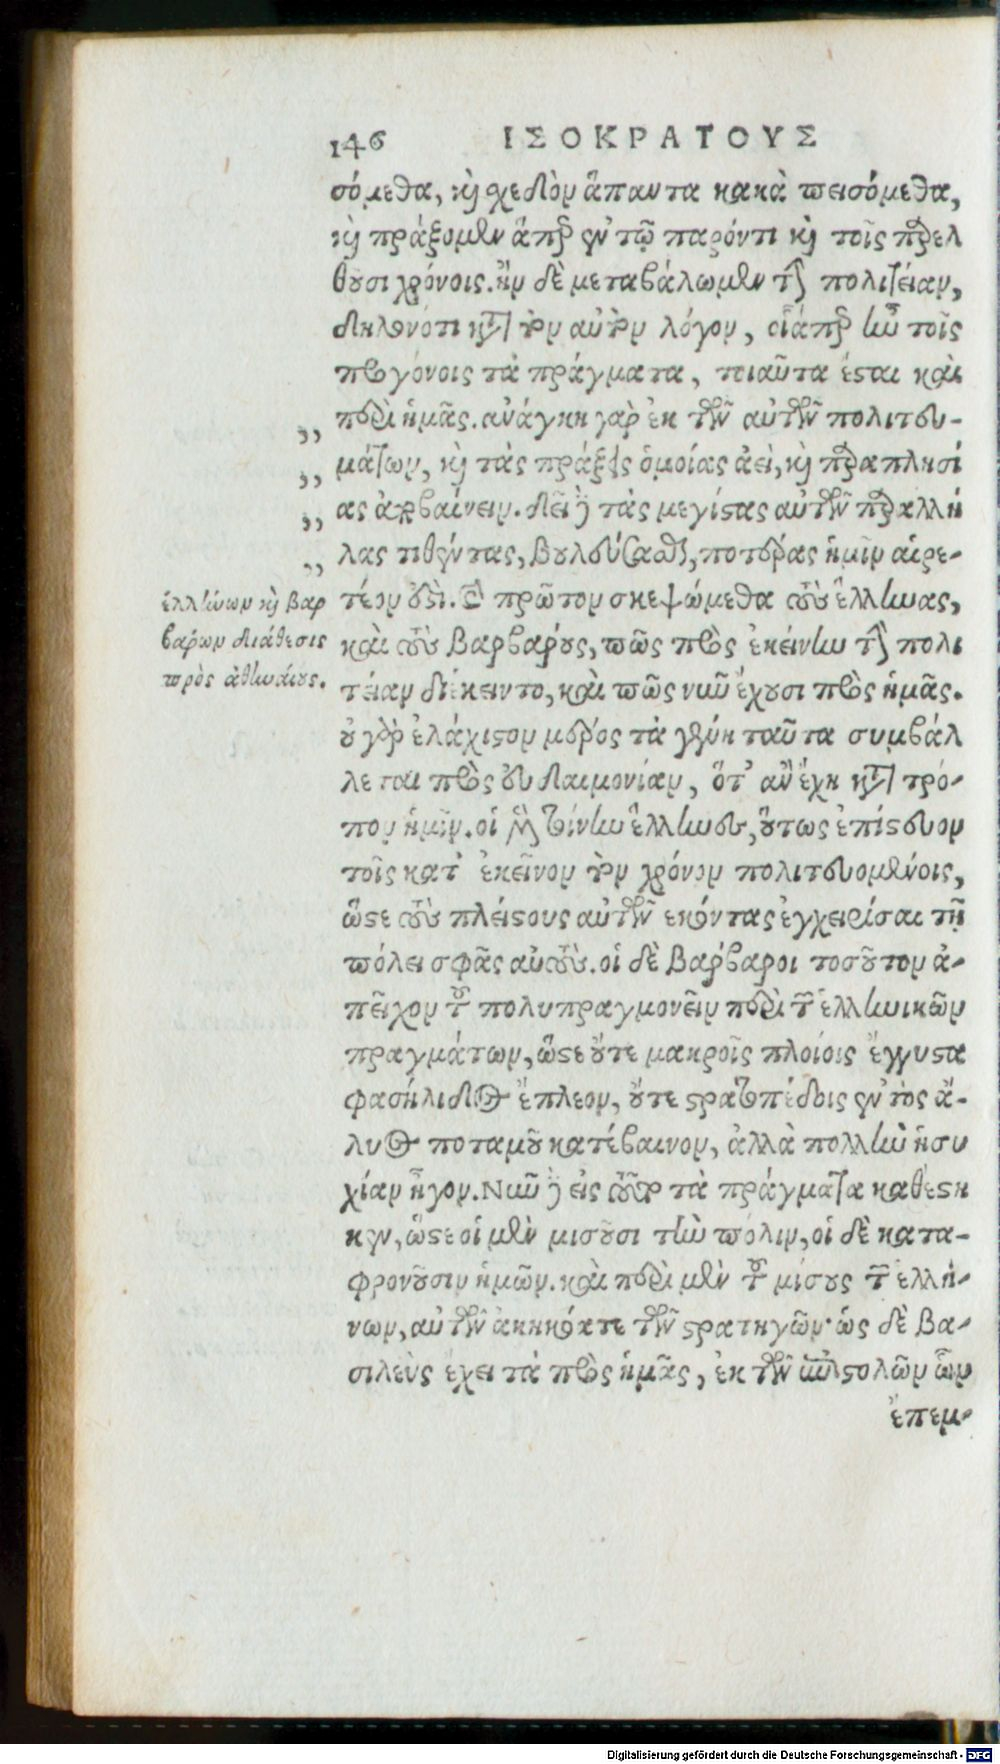 146 ΙΣΟΚΡΑΤΟΥΣ
σόμεθα, καὶ σχεδὸν ἅπαντα κακὰ πεισόμεθα,
καὶ πράξομεν ἅπερ ἐν τῷ παρόντι καὶ τοῖς παρελ
θοῦσι χρόνοις. ἢν δὲ μεταβάλωμεν τὴν πολιτείαν,
δηλονότι κατὰ τὸν αὐτὸν λόγον, οἷάπερ ἦν τοῖς
προγόνοις τὰ πράγματα, τοιαῦτα ἔσται καὶ
περὶ ἡμᾶς. ἀνάγκη γὰρ ἐκ τῶν αὐτῶν πολιτευ-
μάτων, καὶ τὰς πράξεις ὁμοίας ἀεὶ, καὶ παραπλησί
ας ἀποβαίνειν. δεῖ δὲ τὰς μεγίστας αὐτῶν παραλλή
λας τιθέντας, βουλεύσασθαι, ποτέρας ἡμῖν αἱρε-
τέον ἐστὶ. καὶ πρῶτον σκεψώμεθα τοὺς ἕλληνας,
καὶ τοὺς βαρβάρους, πῶς πρὸς ἐκείνην τὴν πολι
τείαν διέκειντο, καὶ πῶς νῦν ἔχουσι πρὸς ἡμᾶς.
οὐ γὰρ ἐλάχιστον μέρος τὰ γένη ταῦτα συμβάλ
λεται πρὸς εὐδαιμονίαν, ὅτ' ἂν ἔχῃ κατὰ τρό-
πον ἡμῖν. οἱ μὲν τοίνυν ἕλληνες, οὕτως ἐπίστευον
τοῖς κατ' ἐκεῖνον τὸν χρόνον πολιτευομένοις,
ὥστε τοὺς πλείστους αὐτῶν ἑκόντας ἐγχειρίσαι τῇ
πόλει σφᾶς αὐτοὺς. οἱ δὲ βάρβαροι τοσοῦτον ἀ-
πεῖχον τοῦ πολυπραγμονεῖν περὶ τῶν ἑλληνικῶν
πραγμάτων, ὥστε οὔτε μακροῖς πλοίοις ἔγγιστα
φασήλιδος ἔπλεον, οὔτε στρατοπέδοις ἐντὸς ἅ-
λυος ποταμοῦ κατέβαινον, ἀλλὰ πολλὴν ἡσυ
χίαν ἦγον. Νῦν δὲ εἰς τοῦτο τὰ πράγματα καθέστη
κεν, ὥστε οἱ μὲν μισοῦσι τὴν πόλιν, οἱ δὲ κατα-
φρονοῦσιν ἡμῶν. καὶ περὶ μὲν τοῦ μίσους τῶν ἑλλή-
νων, αὐτῶν ἀκηκόατε τῶν στρατηγῶν· ὡς δὲ βα-
σιλεὺς ἔχει τὰ πρὸς ἡμᾶς, ἐκ τῶν ἐπιστολῶν ὧν
ἔπεμ-
,,
,,
,,
,,
ἑλλήνων καὶ βαρ
βάρων διάθεσις
πρὸς ἀθηναίους.
Digitalisierung gefördert durch die Deutsche Forschungsgemeinschaft - DFG